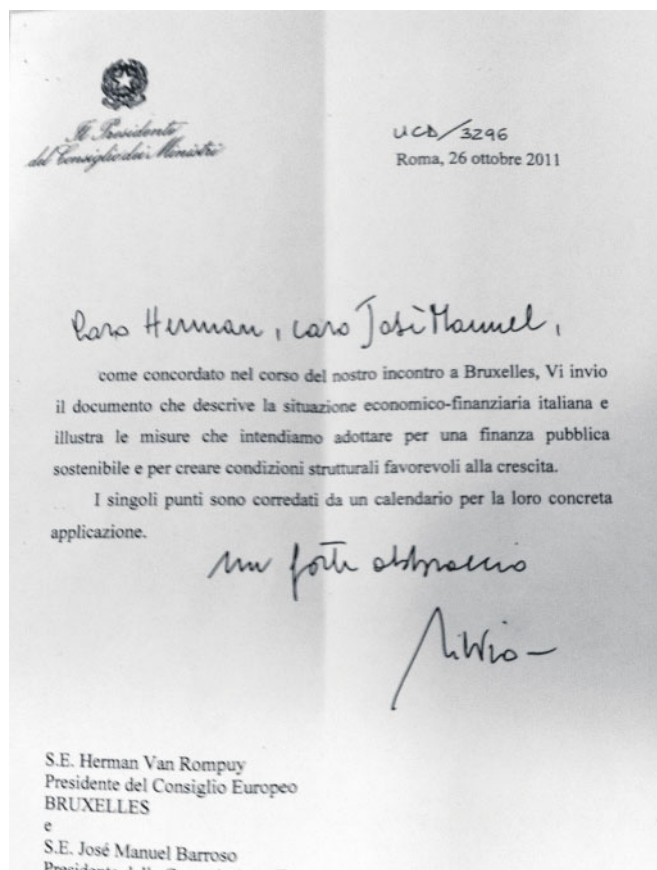 Il Presidente
del Consiglio dei Ministri
UCD/3296
Roma, 26 ottobre 2011
Caro Herman, caro José Manuel,
come concordato nel corso del nostro incontro a Bruxelles, Vi invio
il documento che descrive la situazione economico-finanziaria italiana e
illustra le misure che intendiamo adottare per una finanza pubblica
sostenibile e per creare condizioni strutturali favorevoli alla crescita.
I singoli punti sono corredati da un calendario per la loro concreta
applicazione.
Un forte abbraccio
Silvio
S.E. Herman Van Rompuy
Presidente del Consiglio Europeo
BRUXELLES
e
S.E. José Manuel Barroso